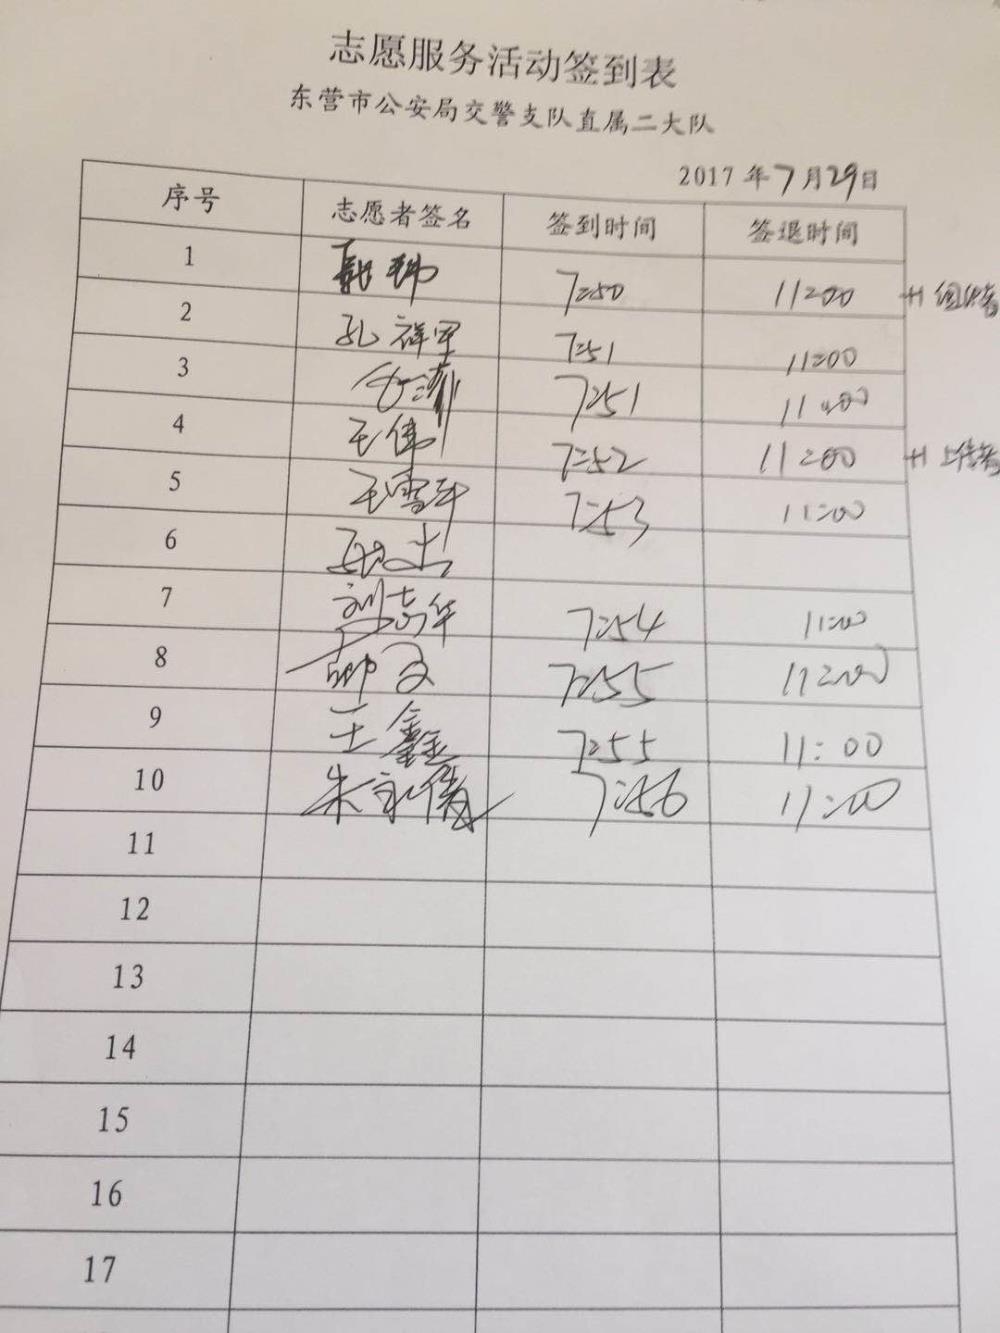 志愿服务活动签到表
东营市公安局交警支队直属二大队
2017年7月29日
序号 志愿者签名 签到时间 签退时间
1 7:50 11:00 +1 组织者
2 孔祥军 7:51 11:00
3 7:51 11:00
4 王伟 7:52 11:00 +1 上传者
5 王雪军 7:53 11:00
6
7 刘志华 7:54 11:00
8 7:55 11:00
9 王鑫 7:55 11:00
10 朱永俊 7:56 11:00
11
12
13
14
15
16
17